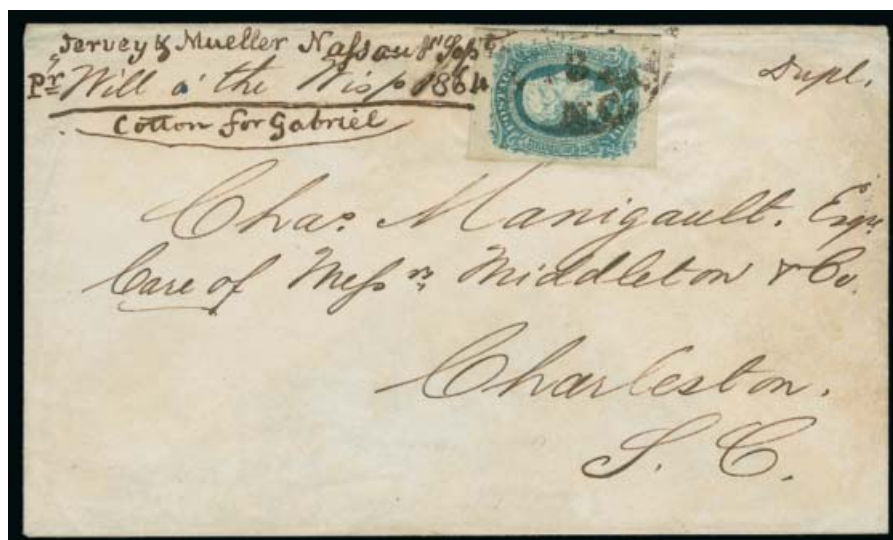 Jervey & Mueller Nassau Sept
Pr Will o' the Wisp 1864
Cotton for Gabriel
Dupl.
N.C.
Chas. Manigault. Esqr.
Care of Messrs. Middleton & Co.
Charleston.
S. C.